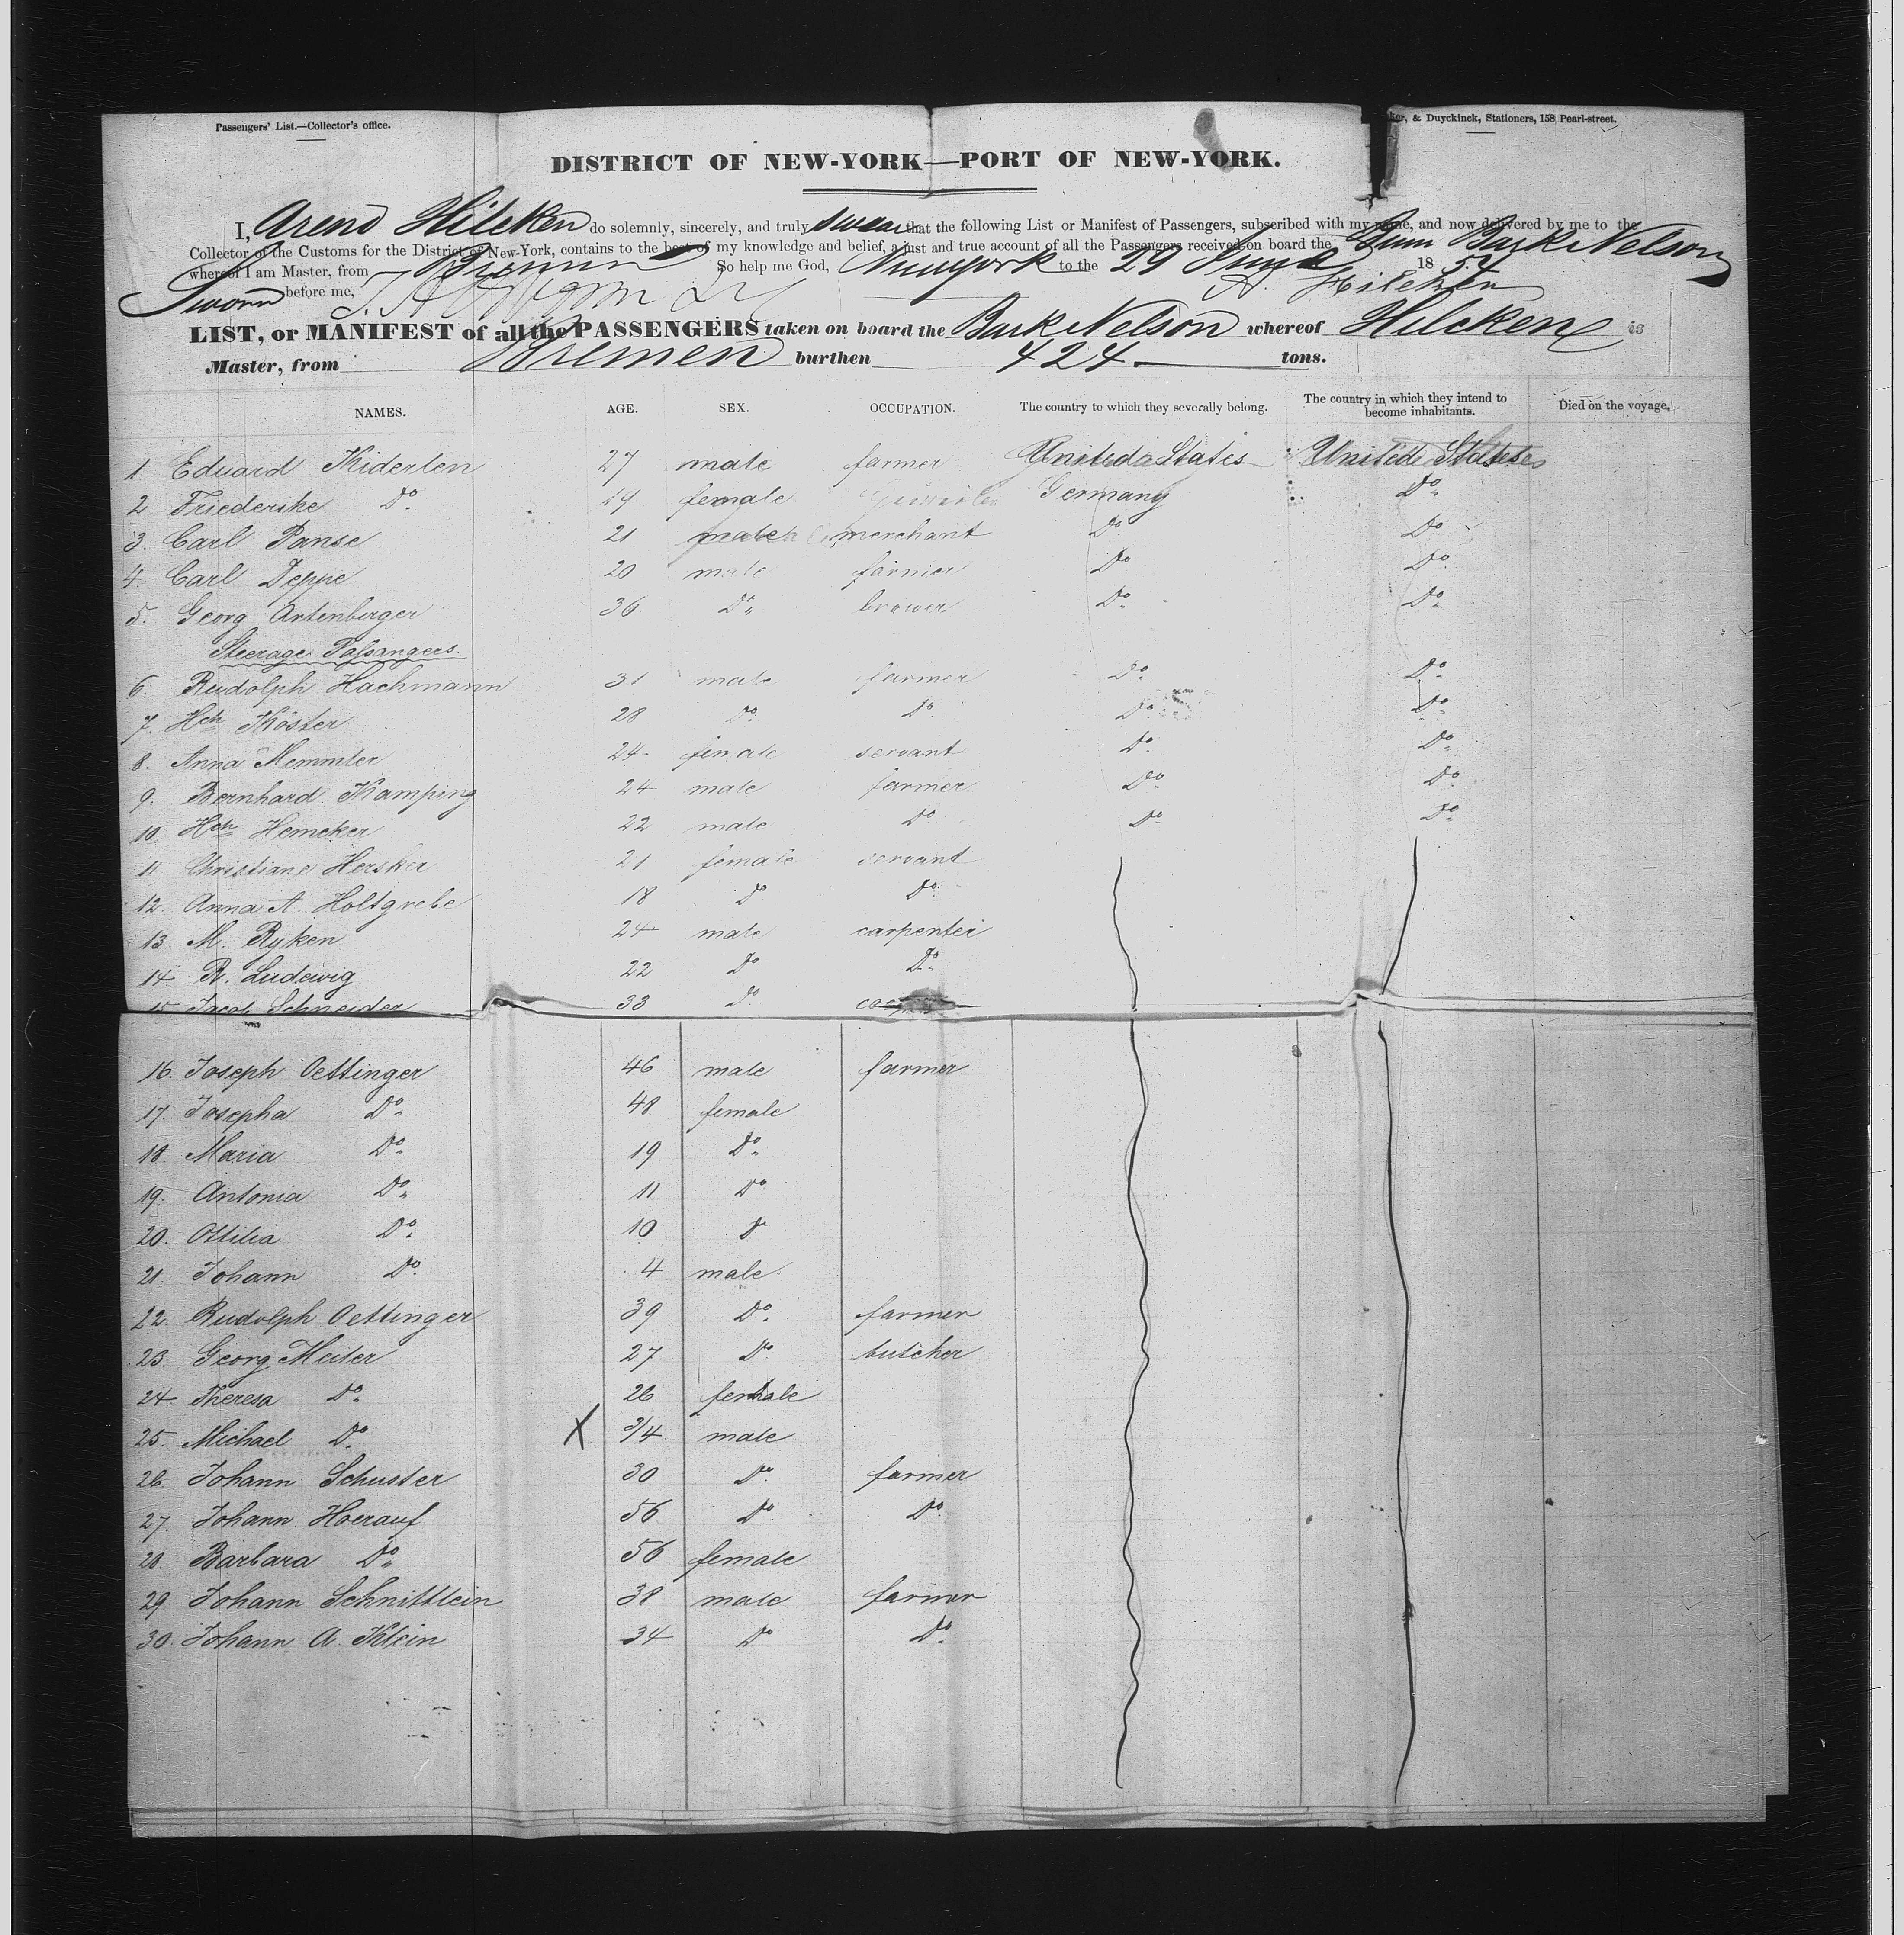 Passengers' List.—Collector's office.
ker, & Duyckinck, Stationers, 158 Pearl-street.
DISTRICT OF NEW-YORK—PORT OF NEW-YORK.
I, Arend Hilcken do solemnly, sincerely, and truly swear that the following List or Manifest of Passengers, subscribed with my name, and now delivered by me to the
Collector of the Customs for the District of New-York, contains to the best of my knowledge and belief, a just and true account of all the Passengers received on board the Bark Nelson
whereof I am Master, from Bremen So help me God, Newyork to the 29 June 18
Sworn before me, A. Hilcken
LIST, or MANIFEST of all the PASSENGERS taken on board the Bark Nelson whereof Hilcken is
Master, from Bremen burthen 424 tons.
NAMES. AGE. SEX. OCCUPATION. The country to which they severally belong. The country in which they intend to become inhabitants. Died on the voyage,
1. Eduard Kiderlen 27 male farmer United States United States
2 Friederike Do. female Germany Do.
3. Carl Panse 21 male merchant Do. Do
4. Carl Deppe 20 male farmer Do Do.
5. Georg Antenberger 36 Do. brower Do. Do.
Steerage Passangers.
6. Rudolph Hachmann 31 male farmer Do. Do.
7. Hch Köster 28 Do. Do. Do. Do.
8. Anna Memmler 24 female servant Do. Do.
9. Bernhard Kamping 24 male farmer Do. Do.
10. Hch Hemeker 22 male Do Do. Do.
11 Christiane Hersker 21 female servant
12. Anna A. Holtgrebe 18 Do Do.
13. M. Ryken 24 male carpenter
14 R. Ludewig 22 Do Do.
15 Jacob Schneider 33 Do.
16. Joseph Oettinger 46 male farmer
17. Josepha Do. 48 female
18. Maria Do. 19 Do.
19. Antonia Do. 11 Do
20. Ottilia Do. 10 Do
21. Johann Do. 4 male
22. Rudolph Oettinger 39 Do. farmer
23. Georg Meiler 27 Do. butcher
24 Theresa Do. 26 female
25. Michael Do. X 3/4 male
26. Johann Schuster 30 Do. farmer
27. Johann Hoerauf 56 Do. Do.
28. Barbara Do. 56 female
29 Johann Schnittlein 38 male farmer
30. Johann A. Klein 34 Do Do.